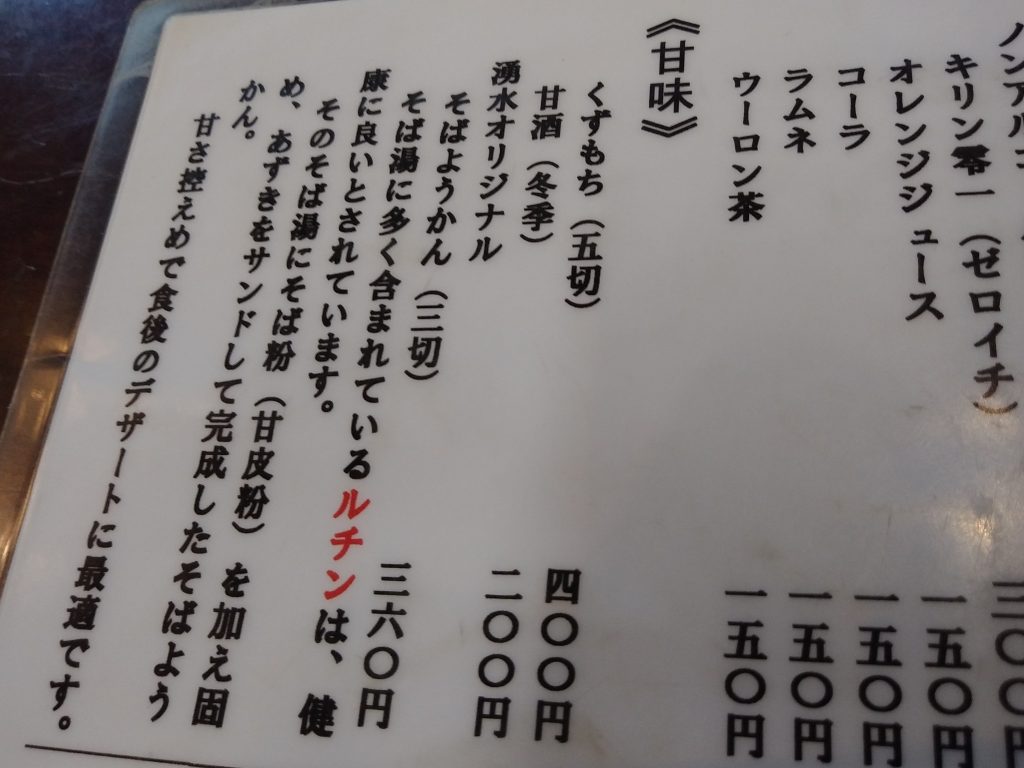 キリン零一（ゼロイチ） 一五〇円
オレンジジュース 一五〇円
コーラ 一五〇円
ラムネ 一五〇円
ウーロン茶 一五〇円
《甘味》
くずもち（五切） 四〇〇円
甘酒（冬季） 二〇〇円
湧水オリジナル
そばようかん（三切） 三六〇円
そば湯に多く含まれているルチンは、健
康に良いとされています。
そのそば湯にそば粉（甘皮粉）を加え固
め、あずきをサンドして完成したそばよう
かん。
甘さ控えめで食後のデザートに最適です。